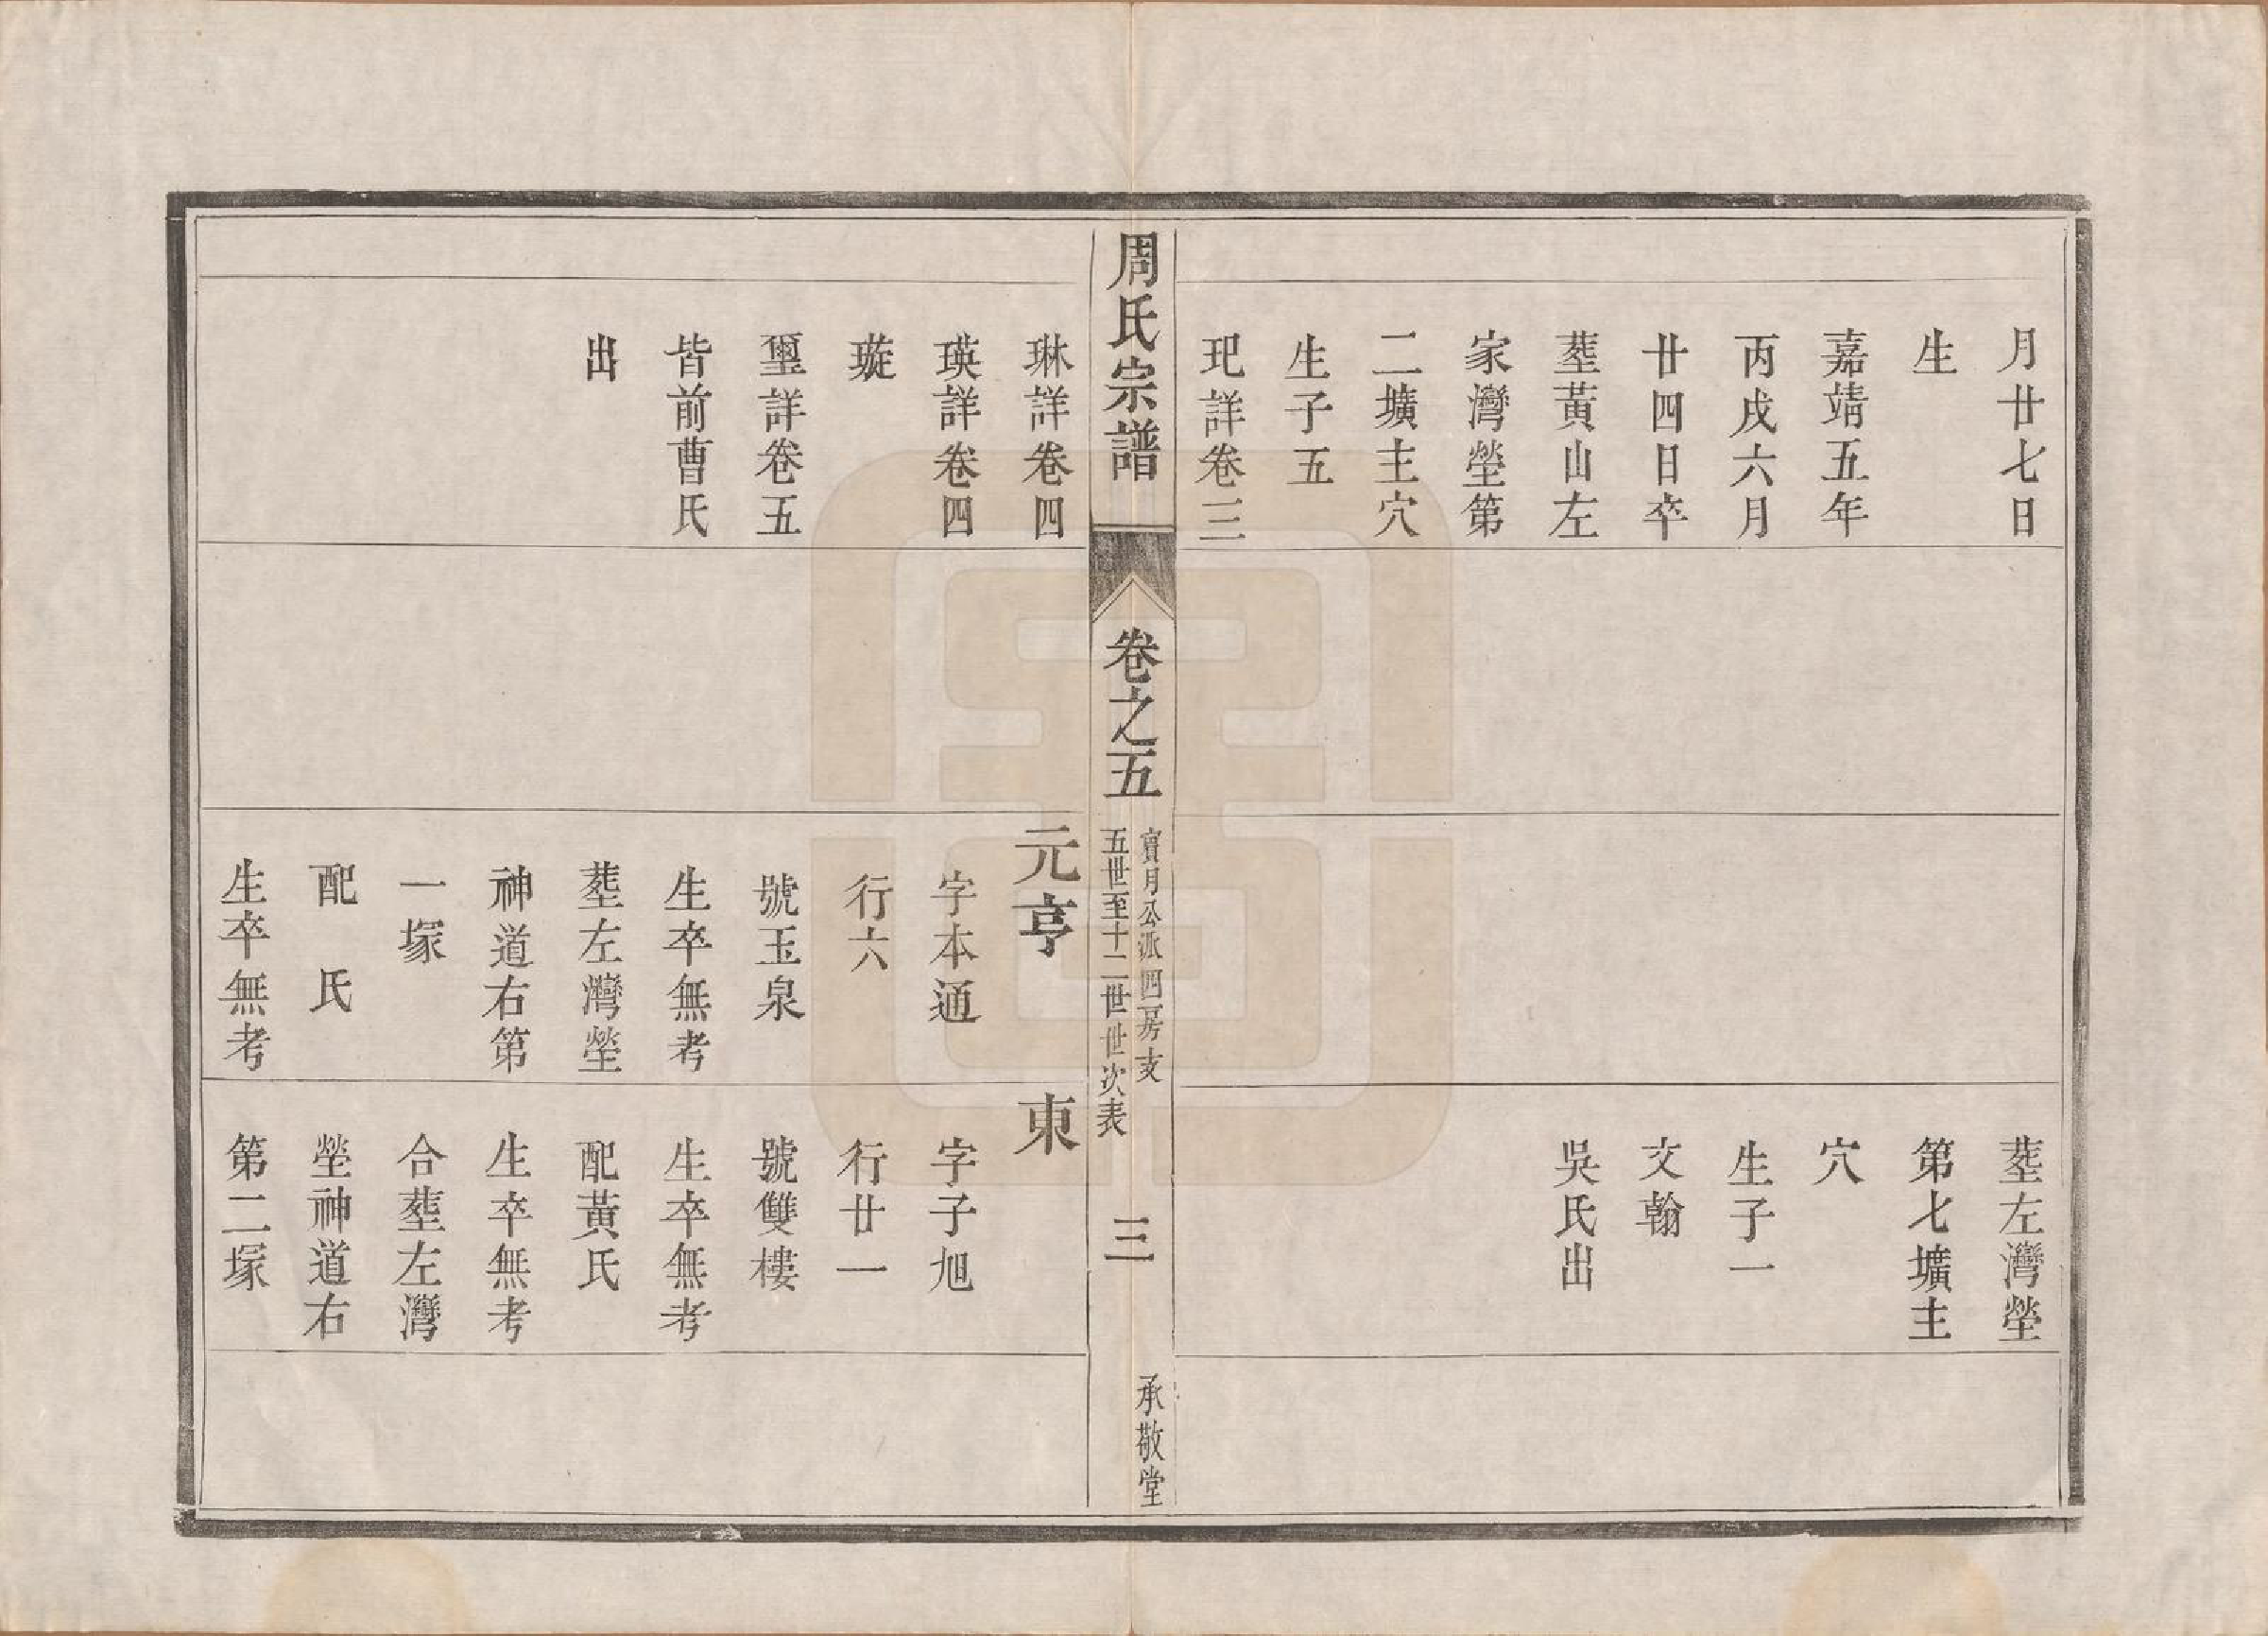 月廿七日
生
嘉靖五年
丙戌六月
廿四日卒
塟黃山左
家灣塋第
二壙主穴
生子五
玘詳卷三
塟左灣塋
第七壙主
穴
生子一
文翰
吳氏出
周氏宗譜
卷之五
寶月公派四房支
五世至十二世世次表
三
承敬堂
琳詳卷四
瑛詳卷四
璇
璽詳卷五
皆前曹氏
出
元亨
字本通
行六
號玉泉
生卒無考
塟左灣塋
神道右第
一塚
配　氏
生卒無考
東
字子旭
行廿一
號雙樓
生卒無考
配黃氏
生卒無考
合塟左灣
塋神道右
第二塚